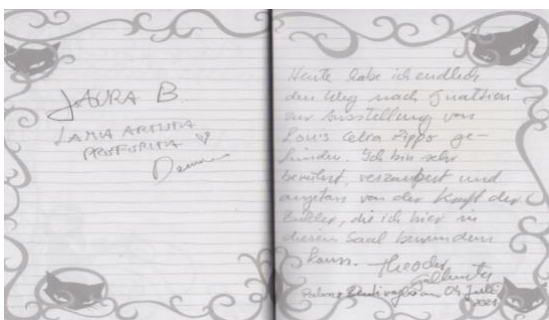 LAURA B.
LAMA
Heute habe ich endlich
den Weg nach Gualtieri
zur Ausstellung von
Louis Celia Zippo ge-
funden. Ich bin sehr
berührt, verzaubert und
angetan von der Kraft der
Bilder, die ich hier in
diesem Saal bewundern
kann. Theodor
Palazzo Bentivoglio 04 Juli
2021